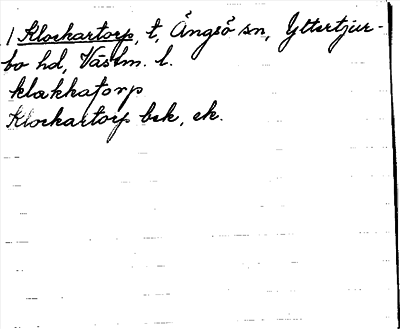 / Klockartorp, t, Ängsö sn, Yttertjur-
bo hd, Västm. l.
klakkatorp
Klockartorp bsk, ek.